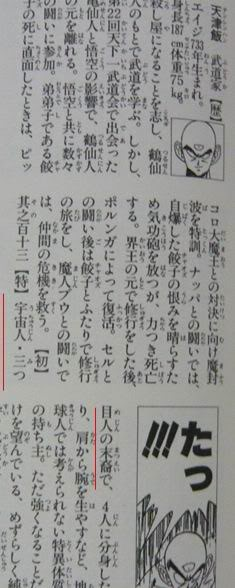 天津飯 武道家【歴】
エイジ733年生まれ。
身長187cm体重75kg。
殺し屋になることを志し、鶴仙
人のもとで武道を学ぶ。しかし、
第22回天下一武道会で出会った
亀仙人と悟空の影響で、鶴仙人
を離れる。悟空と共に数々
の闘いに参加。弟弟子である餃
子の死に直面したときは、ピッ
コロ大魔王との対決に向け魔封
波を特訓。ナッパとの闘いでは、
自爆した餃子の恨みを晴らすた
め気功砲を放つが、力つき死亡
する。界王の元で修行をした後、
ポルンガによって復活。セルと
の闘い後は餃子とふたりで修行
の旅をし、魔人ブウとの闘いで
は、仲間の危機を救う。【初】
其之百十三【特】宇宙人・三つ
たっ!!!
目人の末裔で、4人に分身した
り、肩から腕を生やすなど、地
球人では考えられない特異体質
の持ち主。ただ強くなることだ
けを望んでいる、めずらしく純